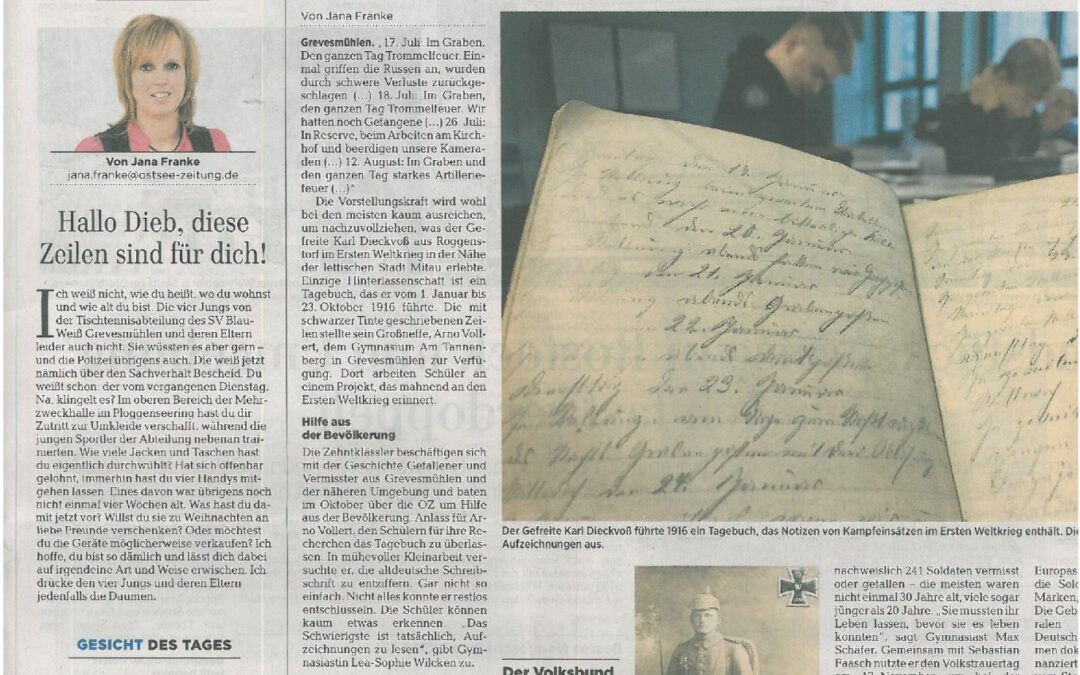 Von Jana Franke
jana.franke@ostsee-zeitung.de
Hallo Dieb, diese
Zeilen sind für dich!
Ich weiß nicht, wie du heißt, wo du wohnst
und wie alt du bist. Die vier Jungs von
der Tischtennisabteilung des SV Blau-
Weiß Grevesmühlen und deren Eltern
leider auch nicht. Sie wüssten es aber gern –
und die Polizei übrigens auch. Die weiß jetzt
nämlich über den Sachverhalt Bescheid. Du
weißt schon: der vom vergangenen Dienstag.
Na, klingelt es? Im oberen Bereich der Mehr-
zweckhalle im Ploggenseering hast du dir
Zutritt zur Umkleide verschafft, während die
jungen Sportler der Abteilung nebenan trai-
nierten. Wie viele Jacken und Taschen hast
du eigentlich durchwühlt? Hat sich offenbar
gelohnt, immerhin hast du vier Handys mit-
gehen lassen. Eines davon war übrigens noch
nicht einmal vier Wochen alt. Was hast du da-
mit jetzt vor? Willst du sie zu Weihnachten an
liebe Freunde verschenken? Oder möchtest
du die Geräte möglicherweise verkaufen? Ich
hoffe, du bist so dämlich und lässt dich dabei
auf irgendeine Art und Weise erwischen. Ich
drücke den vier Jungs und deren Eltern
jedenfalls die Daumen.
GESICHT DES TAGES
Von Jana Franke
Grevesmühlen. „17. Juli: Im Graben.
Den ganzen Tag Trommelfeuer. Ein-
mal griffen die Russen an, wurden
durch schwere Verluste zurückge-
schlagen (...) 18. Juli: Im Graben,
den ganzen Tag Trommelfeuer. Wir
hatten noch Gefangene (...) 26. Juli:
In Reserve, beim Arbeiten am Kirch-
hof und beerdigen unsere Kamera-
den (...) 12. August: Im Graben und
den ganzen Tag starkes Artillerie-
feuer (...)“
Die Vorstellungskraft wird wohl
bei den meisten kaum ausreichen,
um nachzuvollziehen, was der Ge-
freite Karl Dieckvoß aus Roggens-
torf im Ersten Weltkrieg in der Nähe
der lettischen Stadt Mitau erlebte.
Einzige Hinterlassenschaft ist ein
Tagebuch, das er vom 1. Januar bis
23. Oktober 1916 führte. Die mit
schwarzer Tinte geschriebenen Zei-
len stellte sein Großneffe, Arno Vol-
lert, dem Gymnasium Am Tannen-
berg in Grevesmühlen zur Verfü-
gung. Dort arbeiten Schüler an
einem Projekt, das mahnend an den
Ersten Weltkrieg erinnert.
Hilfe aus
der Bevölkerung
Die Zehntklässler beschäftigen sich
mit der Geschichte Gefallener und
Vermisster aus Grevesmühlen und
der näheren Umgebung und baten
im Oktober über die OZ um Hilfe
aus der Bevölkerung. Anlass für Ar-
no Vollert, den Schülern für ihre Re-
cherchen das Tagebuch zu überlas-
sen. In mühevoller Kleinarbeit ver-
suchte er, die altdeutsche Schreib-
schrift zu entziffern. Gar nicht so
einfach. Nicht alles konnte er restlos
entschlüsseln. Die Schüler können
kaum etwas erkennen. „Das
Schwierigste ist tatsächlich, Auf-
zeichnungen zu lesen“, gibt Gym-
nasiastin Lea-Sophie Wilcken zu.
19. Januar
20. Januar
21. Januar
22. Januar
23. Januar
24. Januar
Der Gefreite Karl Dieckvoß führte 1916 ein Tagebuch, das Notizen von Kampfeinsätzen im Ersten Weltkrieg enthält.
Aufzeichnungen aus.
Der Volksbund
nachweislich 241 Soldaten vermisst
oder gefallen – die meisten waren
nicht einmal 30 Jahre alt, viele sogar
jünger als 20 Jahre. „Sie mussten ihr
Leben lassen, bevor sie es leben
konnten“, sagt Gymnasiast Max
Schäfer. Gemeinsam mit Sebastian
Faasch nutzte er den Volkstrauertag
Europas
die Sol
Marken,
Die Geb
ralen
Deutsch
men dok
nanziert